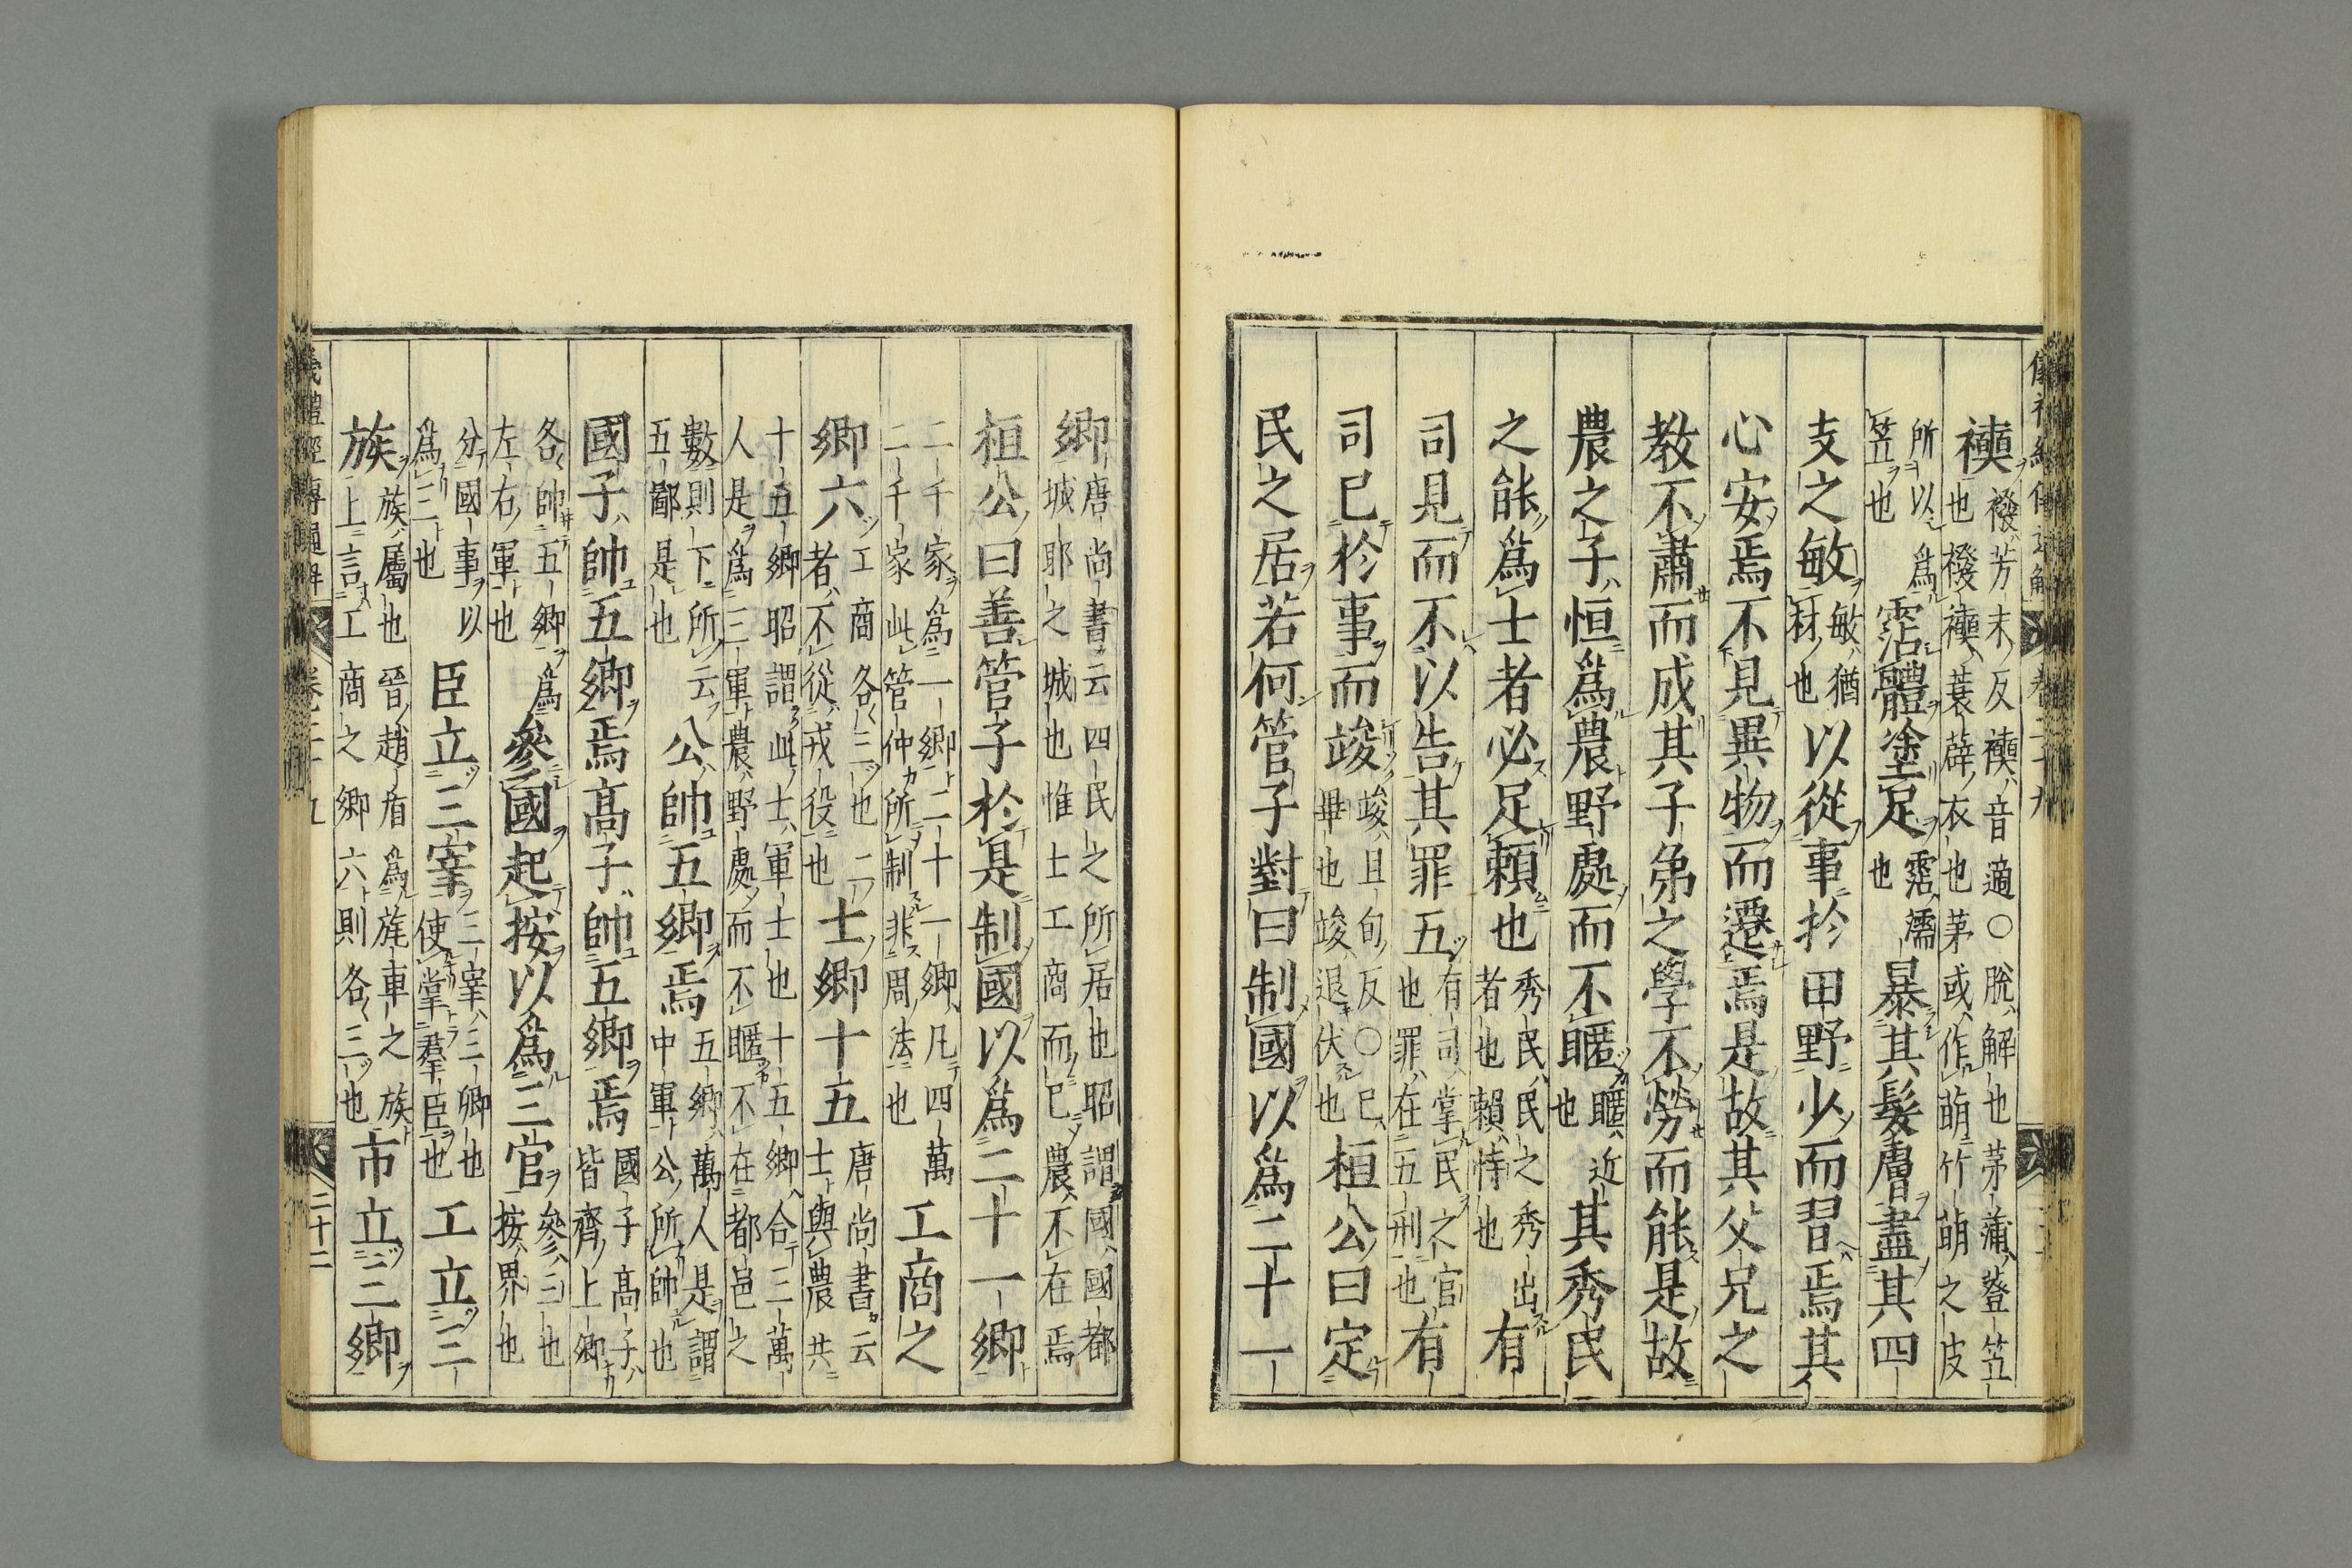 儀禮經傳通解 卷二十九
襫襏芳末反襫音適○脫解也茅蒲簦笠也襏襫蓑薜衣也茅或作萌竹萌之皮
所以爲笠也霑體塗足霑濡也暴其髮膚盡其四
支之敏敏猶材也以從事於田野少而習焉其
心安焉不見異物而遷焉是故其父兄之
教不肅而成其子弟之學不勞而能是故
農之子恒爲農野處而不暱暱近也其秀民
之能爲士者必足賴也秀民民之秀出者也賴恃也有
司見而不以告其罪五有司掌民之官也罪在五刑也有
司已於事而竣竣且旬反○已畢也竣退伏也桓公曰定
民之居若何管子對曰制國以爲二十一
鄉唐尚書云四民之所居也昭謂國國都城耶之城也惟士工商而已農不在焉
桓公曰善管子於是制國以爲二十一鄉
二千家爲一鄉二十一鄉凡四萬二千家此管仲所制非周法也工商之
鄉六工商各三也二者不從戎役也士鄉十五唐尚書云士與農共
十五鄉昭謂此士軍士也十五鄉合三萬人是爲三軍農野處而不暱不在都邑之
數則下所云五鄙是也公帥五鄉焉五鄉萬人是謂中軍公所帥也
國子帥五鄉焉高子帥五鄉焉國子高子皆齊上卿
各帥五鄉爲左右軍也參國起按以爲三官參三也按界也
分國事以爲三也臣立三宰三宰三卿也使掌羣臣也工立三
族族屬也晉趙盾爲旄車之族上言工商之鄉六則各三也市立三鄉
儀禮經傳通解 卷二十九 二十二